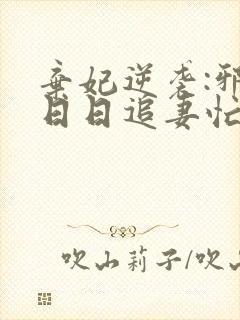 弃妃逆袭:邪
日日追妻忙
吹山莉子/吹山